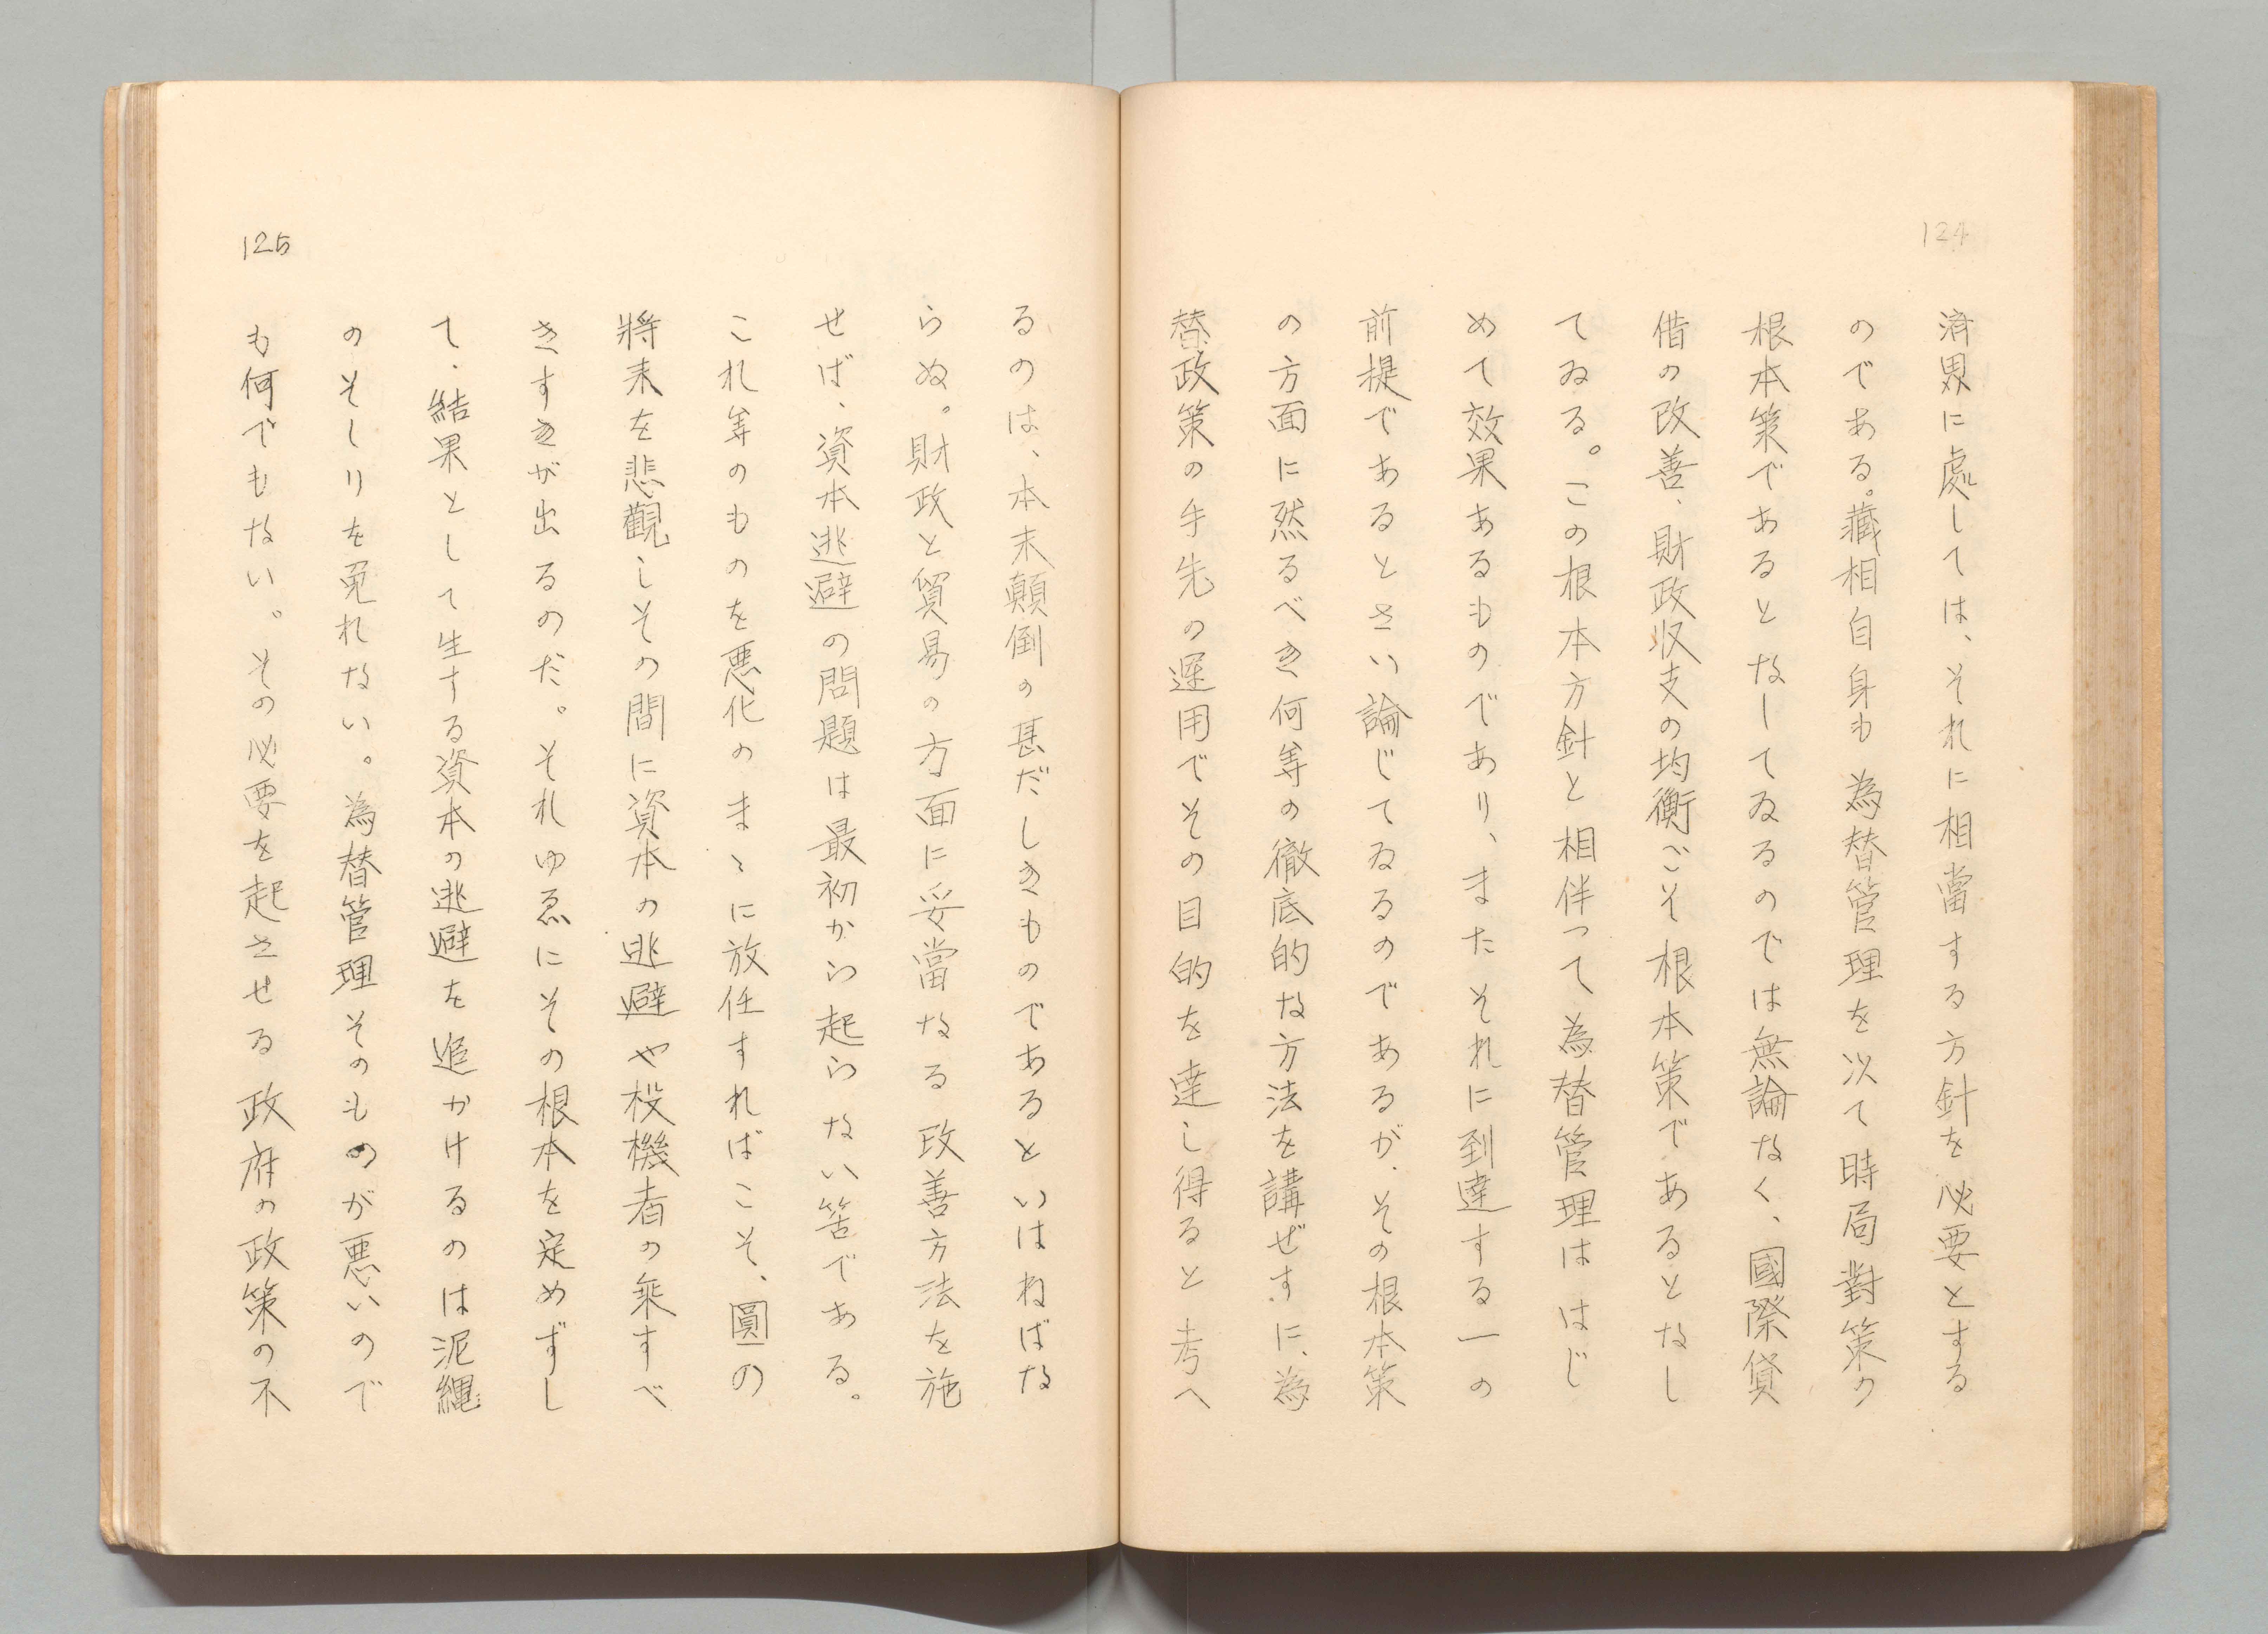 124
済界に處しては、それに相當する方針を必要とする
のである。藏相自身も為替管理を以て時局對策の
根本策であるとなしてゐるのでは無論なく、國際貸
借の改善、財政収支の均衡こそ根本策であるとなし
てゐる。この根本方針と相伴って為替管理ははじ
めて效果あるものであり、またそれに到達する一の
前提であるとさい論じてゐるのであるが、その根本策
の方面に然るべき何等の徹底的な方法を講ぜずに、為
替政策の手先の運用でその目的を達し得ると考へ
るのは、本末顛倒の甚だしきものであるといはねばな
らぬ。財政と貿易の方面に妥當なる改善方法を施
せば、資本逃避の問題は最初から起らない筈である。
これ等のものを悪化のまゝに放任すればこそ、圓の
將来を悲觀しその間に資本の逃避や投機者の乘すべ
きすきが出るのだ。それゆゑにその根本を定めずし
て、結果として生する資本の逃避を追かけるのは泥縄
のそしりを免れない。為替管理そのものが悪いので
も何でもない。その必要を起させる政府の政策の不
125